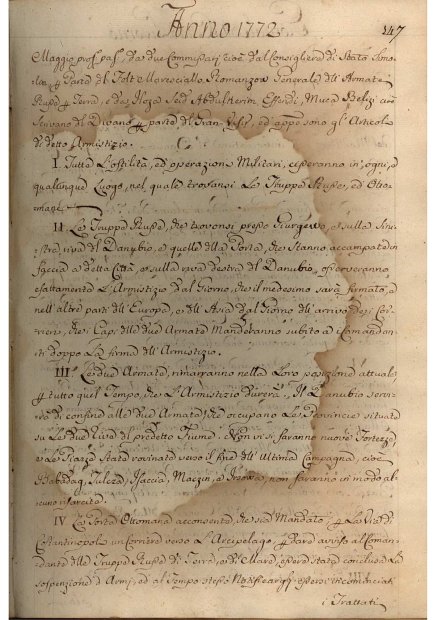 Anno 1772
347
Maggio pross. pas. da due Commissari cioè dal Consigliere di Stato
e Parte del Felt Maresciallo Romanzow Generale dell' Armate
Russe Terra, e da Seid Abdulkerim Effendi, Muca
Scrivano del Divano parte del Gran Vesir, ed appo sono gl' Articoli
di detto Armistizio.
I Tutte L'ostilità, ed operazione Militari, cesseranno in ogni, e
qualunque Luogo, nel quale trovansi Le Truppe Russe, ed Otto=
mane
II Le Truppe Russe, che trovonsi presso Giurgewo, e sulla Sini=
stra riva del Danubio, e quelle della Porta, che stanno accampate in
faccia a detta Città, e sulla riva destra del Danubio, osserveranno
esattamente L'Armistizio dal Giorno, che il medesimo sarà firmato, e
nell' altre parti dell' Europa, e dell' Asia dal Giorno dell' arrivo dei Cor=
rieri, che i Capi delle due Armate Manderanno subito a i Comandan=
ti doppo La firma dell' Armistizio.
III Le due Armate, rimarranno nella Loro posizione attuale,
tutto quel Tempo, che L'Armistizio durerà. Il Danubio servi=
rà di confine alle due Armate, che occupano Le Provincie situate
su Le due Rive del predetto Fiume. Non vi si faranno nuove Fortezze,
e Le Piazze State rovinate verso il fine dell' Ultima Campagna, cioè
Babadag, Tulcza, Isaccia, Maczin, e Irsowa, non saranno in modo al=
cuno risarcite.
IV La Porta Ottomana acconsente, che sia Mandato, La via di
Costantinopoli un Corriere verso L'Arcipelago, dare avviso al Coman=
dante delle Truppe Russe di Terra, e di Mare, essere stata conclusa La
sospenzione d'Armi, ed al Tempo stesso Notificargli essersi incominciati
i Trattati